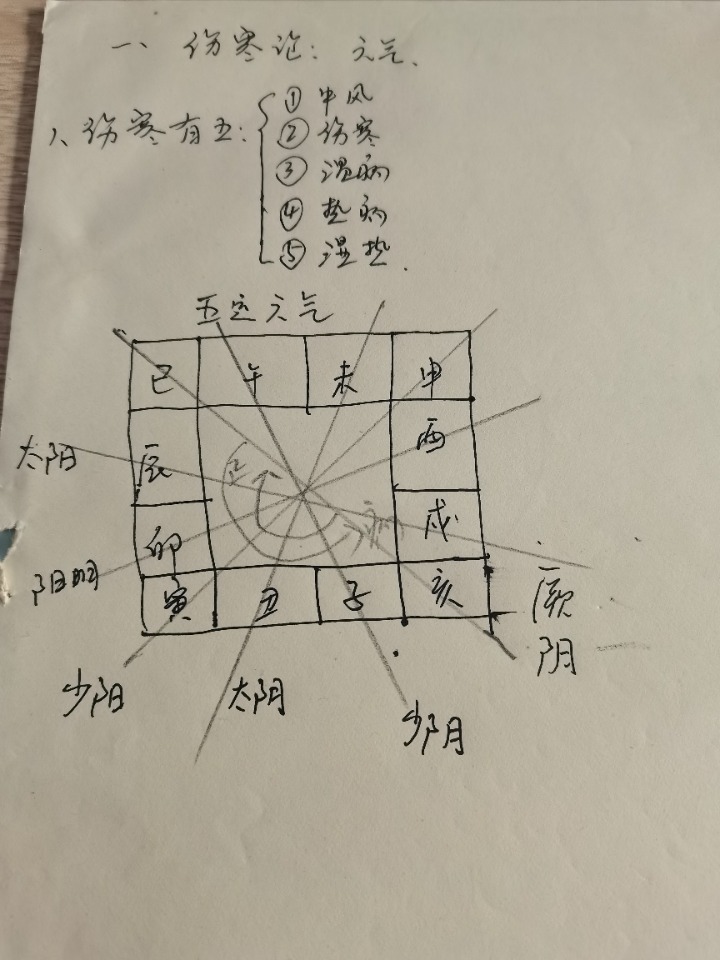 一、伤寒论：六气.
1、伤寒有五：
① 中风
② 伤寒
③ 温病
④ 热病
⑤ 湿热.
五运六气
巳 午 未 申
辰 酉
卯 戌
寅 丑 子 亥
正
病
太阳
阳明
少阳
太阴
少阴
厥阴